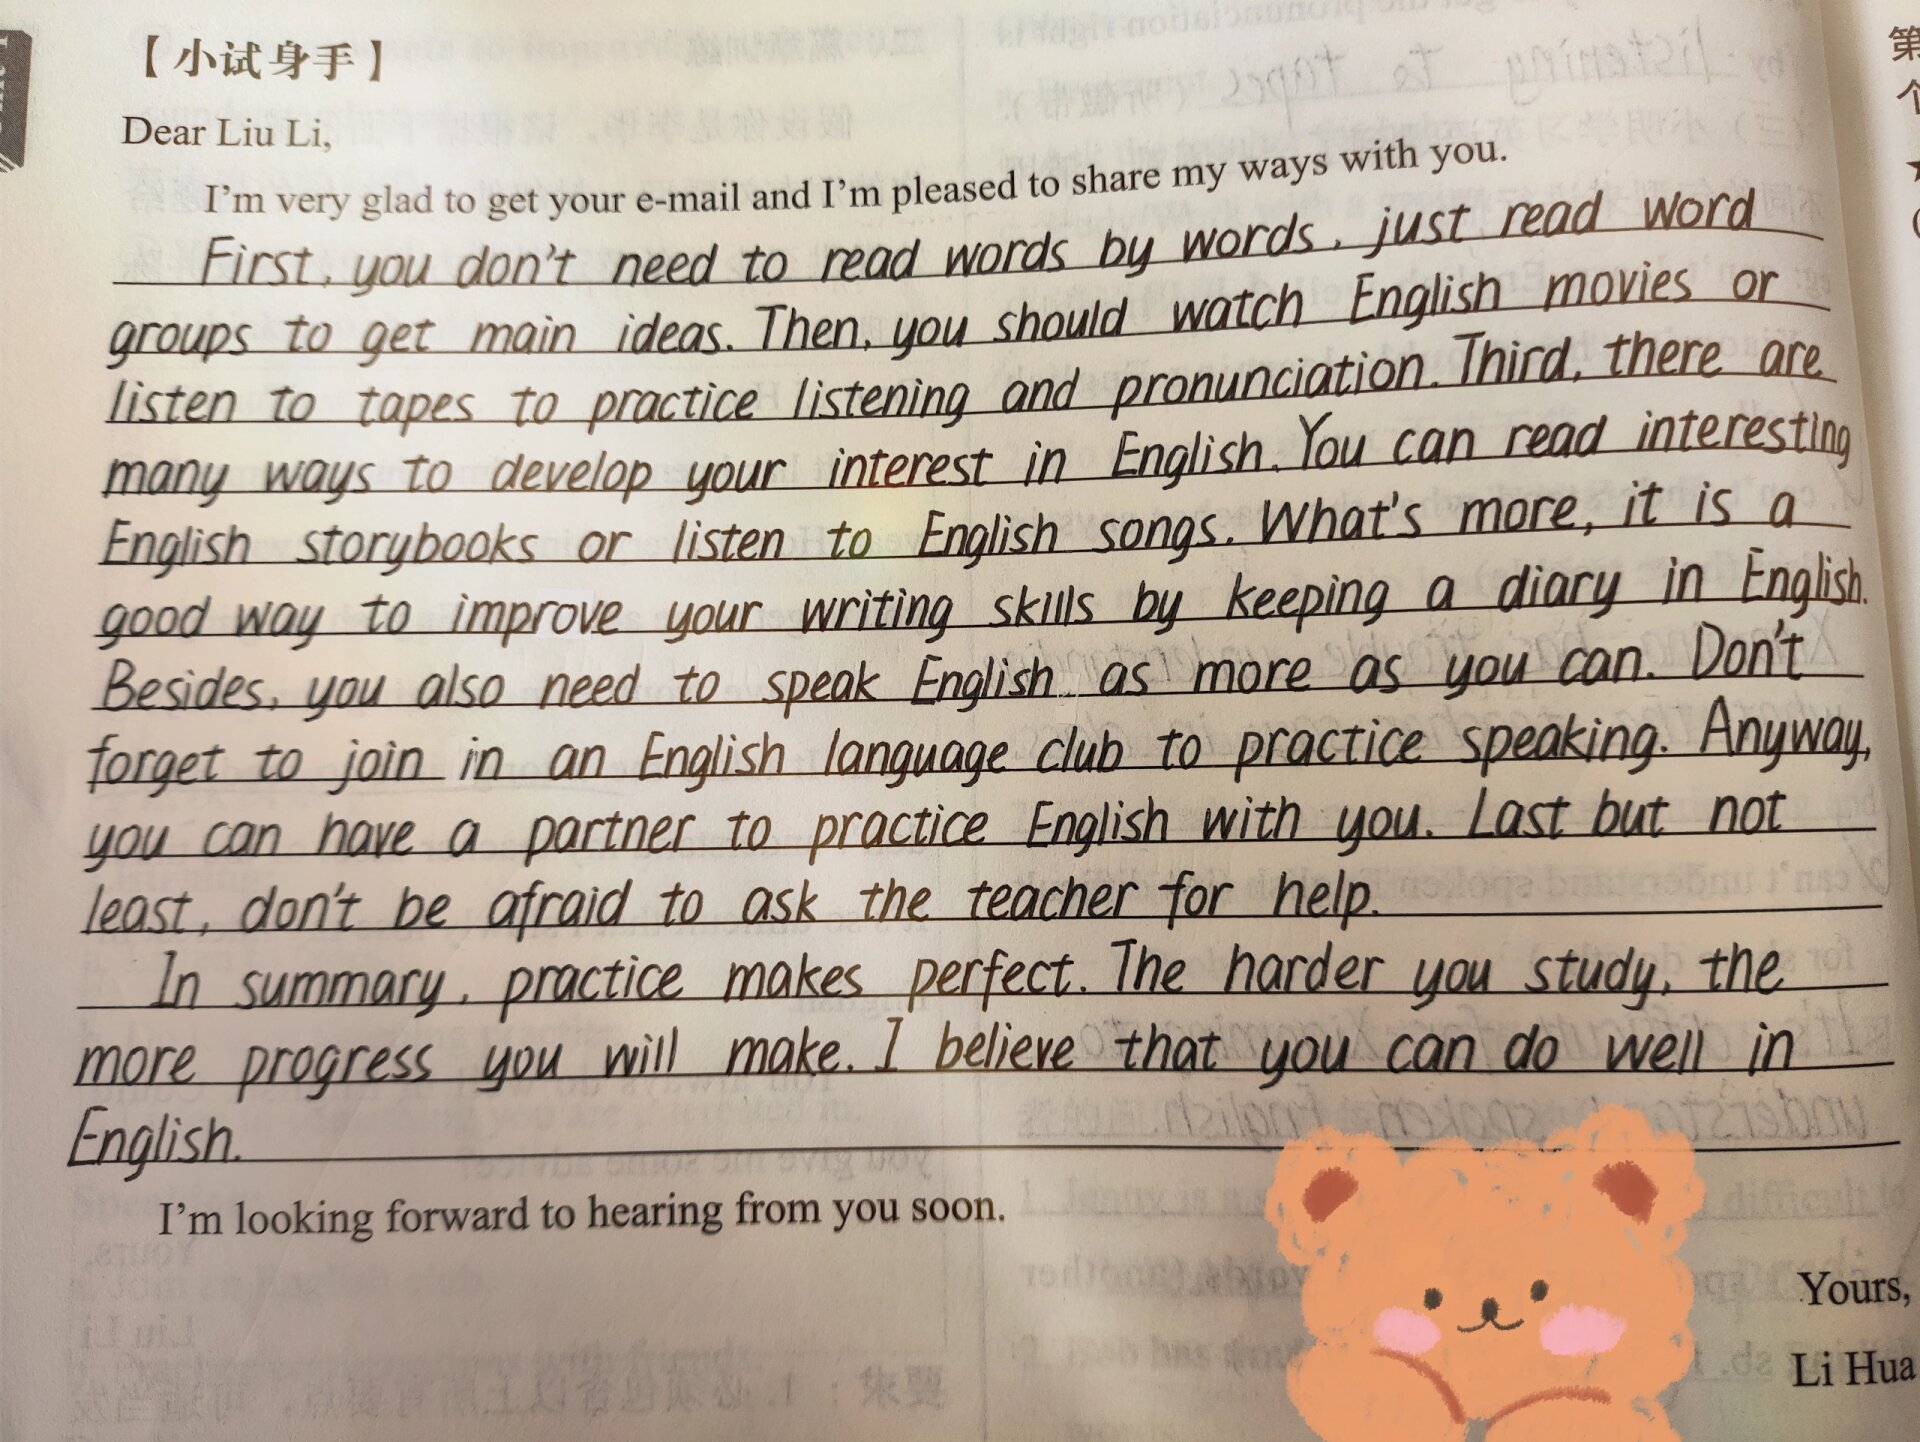 【小试身手】
Dear Liu Li,
I'm very glad to get your e-mail and I'm pleased to share my ways with you.
First, you don't need to read words by words, just read word
groups to get main ideas. Then, you should watch English movies or
listen to tapes to practice listening and pronunciation. Third, there are
many ways to develop your interest in English. You can read interesting
English storybooks or listen to English songs. What's more, it is a
good way to improve your writing skills by keeping a diary in English.
Besides, you also need to speak English as more as you can. Don't
forget to join in an English language club to practice speaking. Anyway,
you can have a partner to practice English with you. Last but not
least, don't be afraid to ask the teacher for help.
In summary, practice makes perfect. The harder you study, the
more progress you will make. I believe that you can do well in
English.
I'm looking forward to hearing from you soon.
Yours,
Li Hua